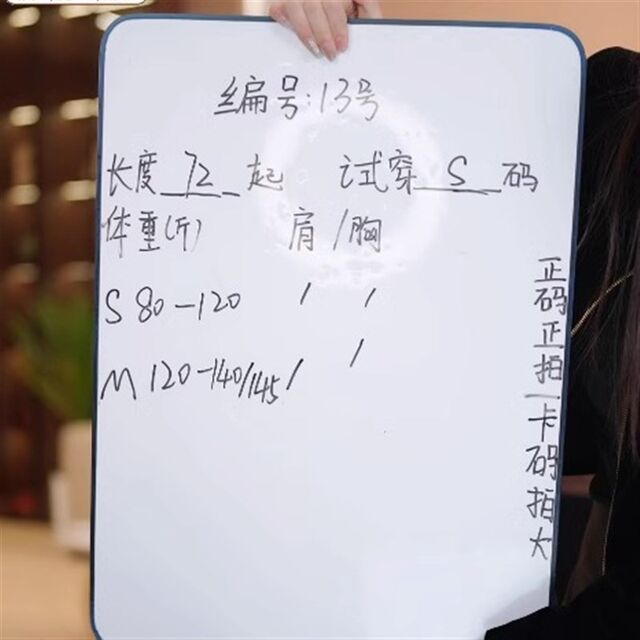 编号:13号
长度72起 试穿S码
体重(斤) 肩/胸
S 80-120 / /
M 120-140/145 / /
正码正拍/卡码拍大